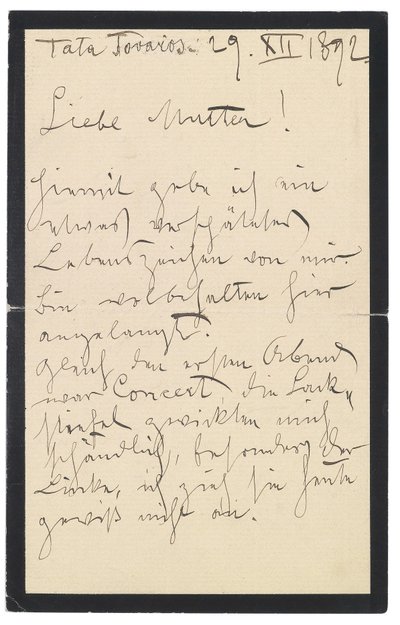 Tata Tovaros: 29. XII 1892.
Liebe Mutter!
hiermit gebe ich ein
etwas verspätetes
Lebenszeichen von mir.
bin wolbehalten hier
angelangt.
gleich den ersten Abend
war Concert, die Lack„
stiefel zwickten mich
schändlich, besonders der
Linke, ich zieh sie heute
gewiß nicht an.